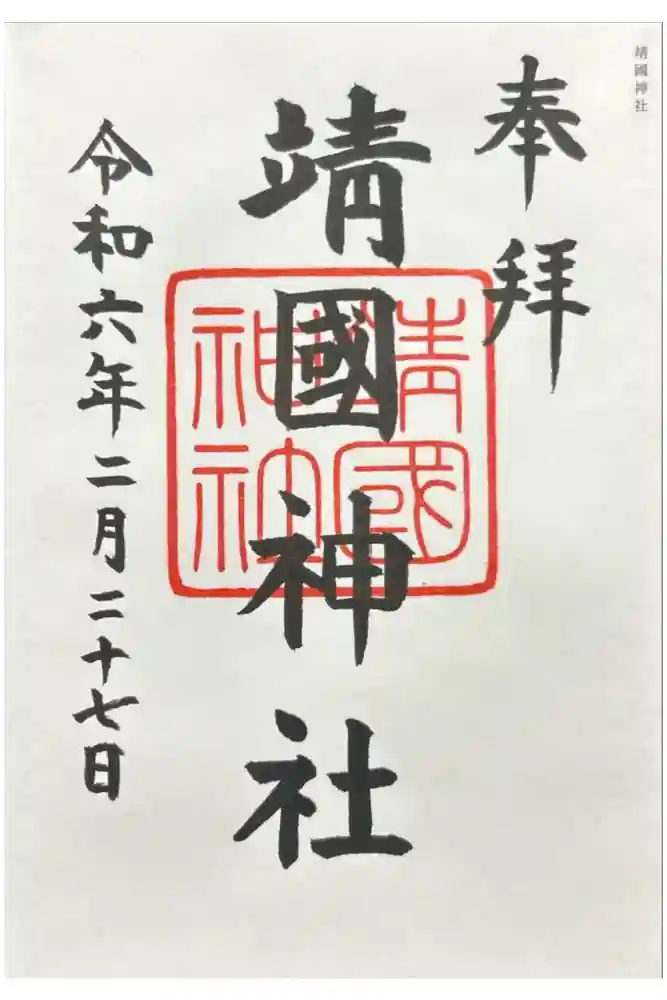 靖國神社
奉拝
靖國神社
靖國
神社
令和六年二月二十七日